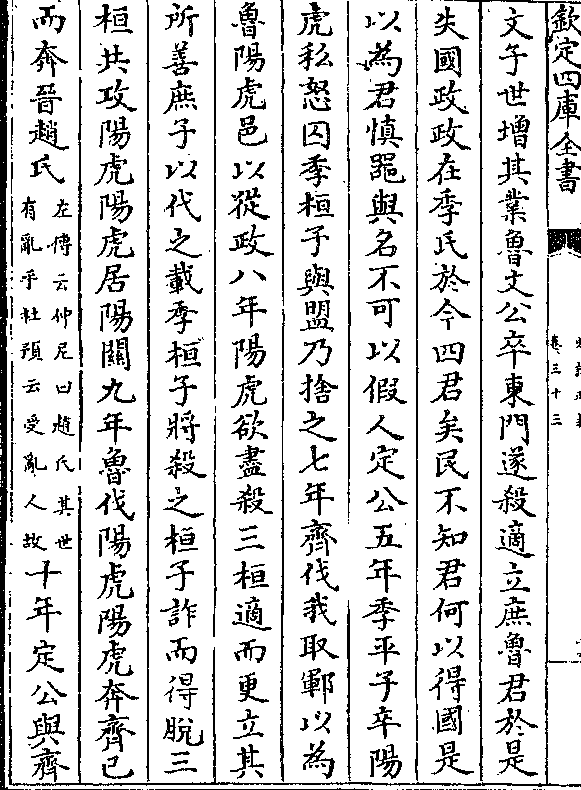 欽定四庫全書
卷三十三
文子世增其業魯文公卒東門遂殺適立庶魯君於是
失國政政在季氏於今四君矣民不知君何以得國是
以為君慎器與名不可以假人定公五年季平子卒陽
虎私怒囚季桓子與盟乃捨之七年齊伐我取鄆以為
魯陽虎邑以從政八年陽虎欲盡殺三桓適而更立其
所善庶子以代之載季桓子將殺之桓子詐而得脫三
桓共攻陽虎陽虎居陽關九年魯伐陽虎陽虎奔齊已
而奔晉趙氏左傳云仲尼曰趙氏其世有亂乎杜預云受亂人故十年定公與齊